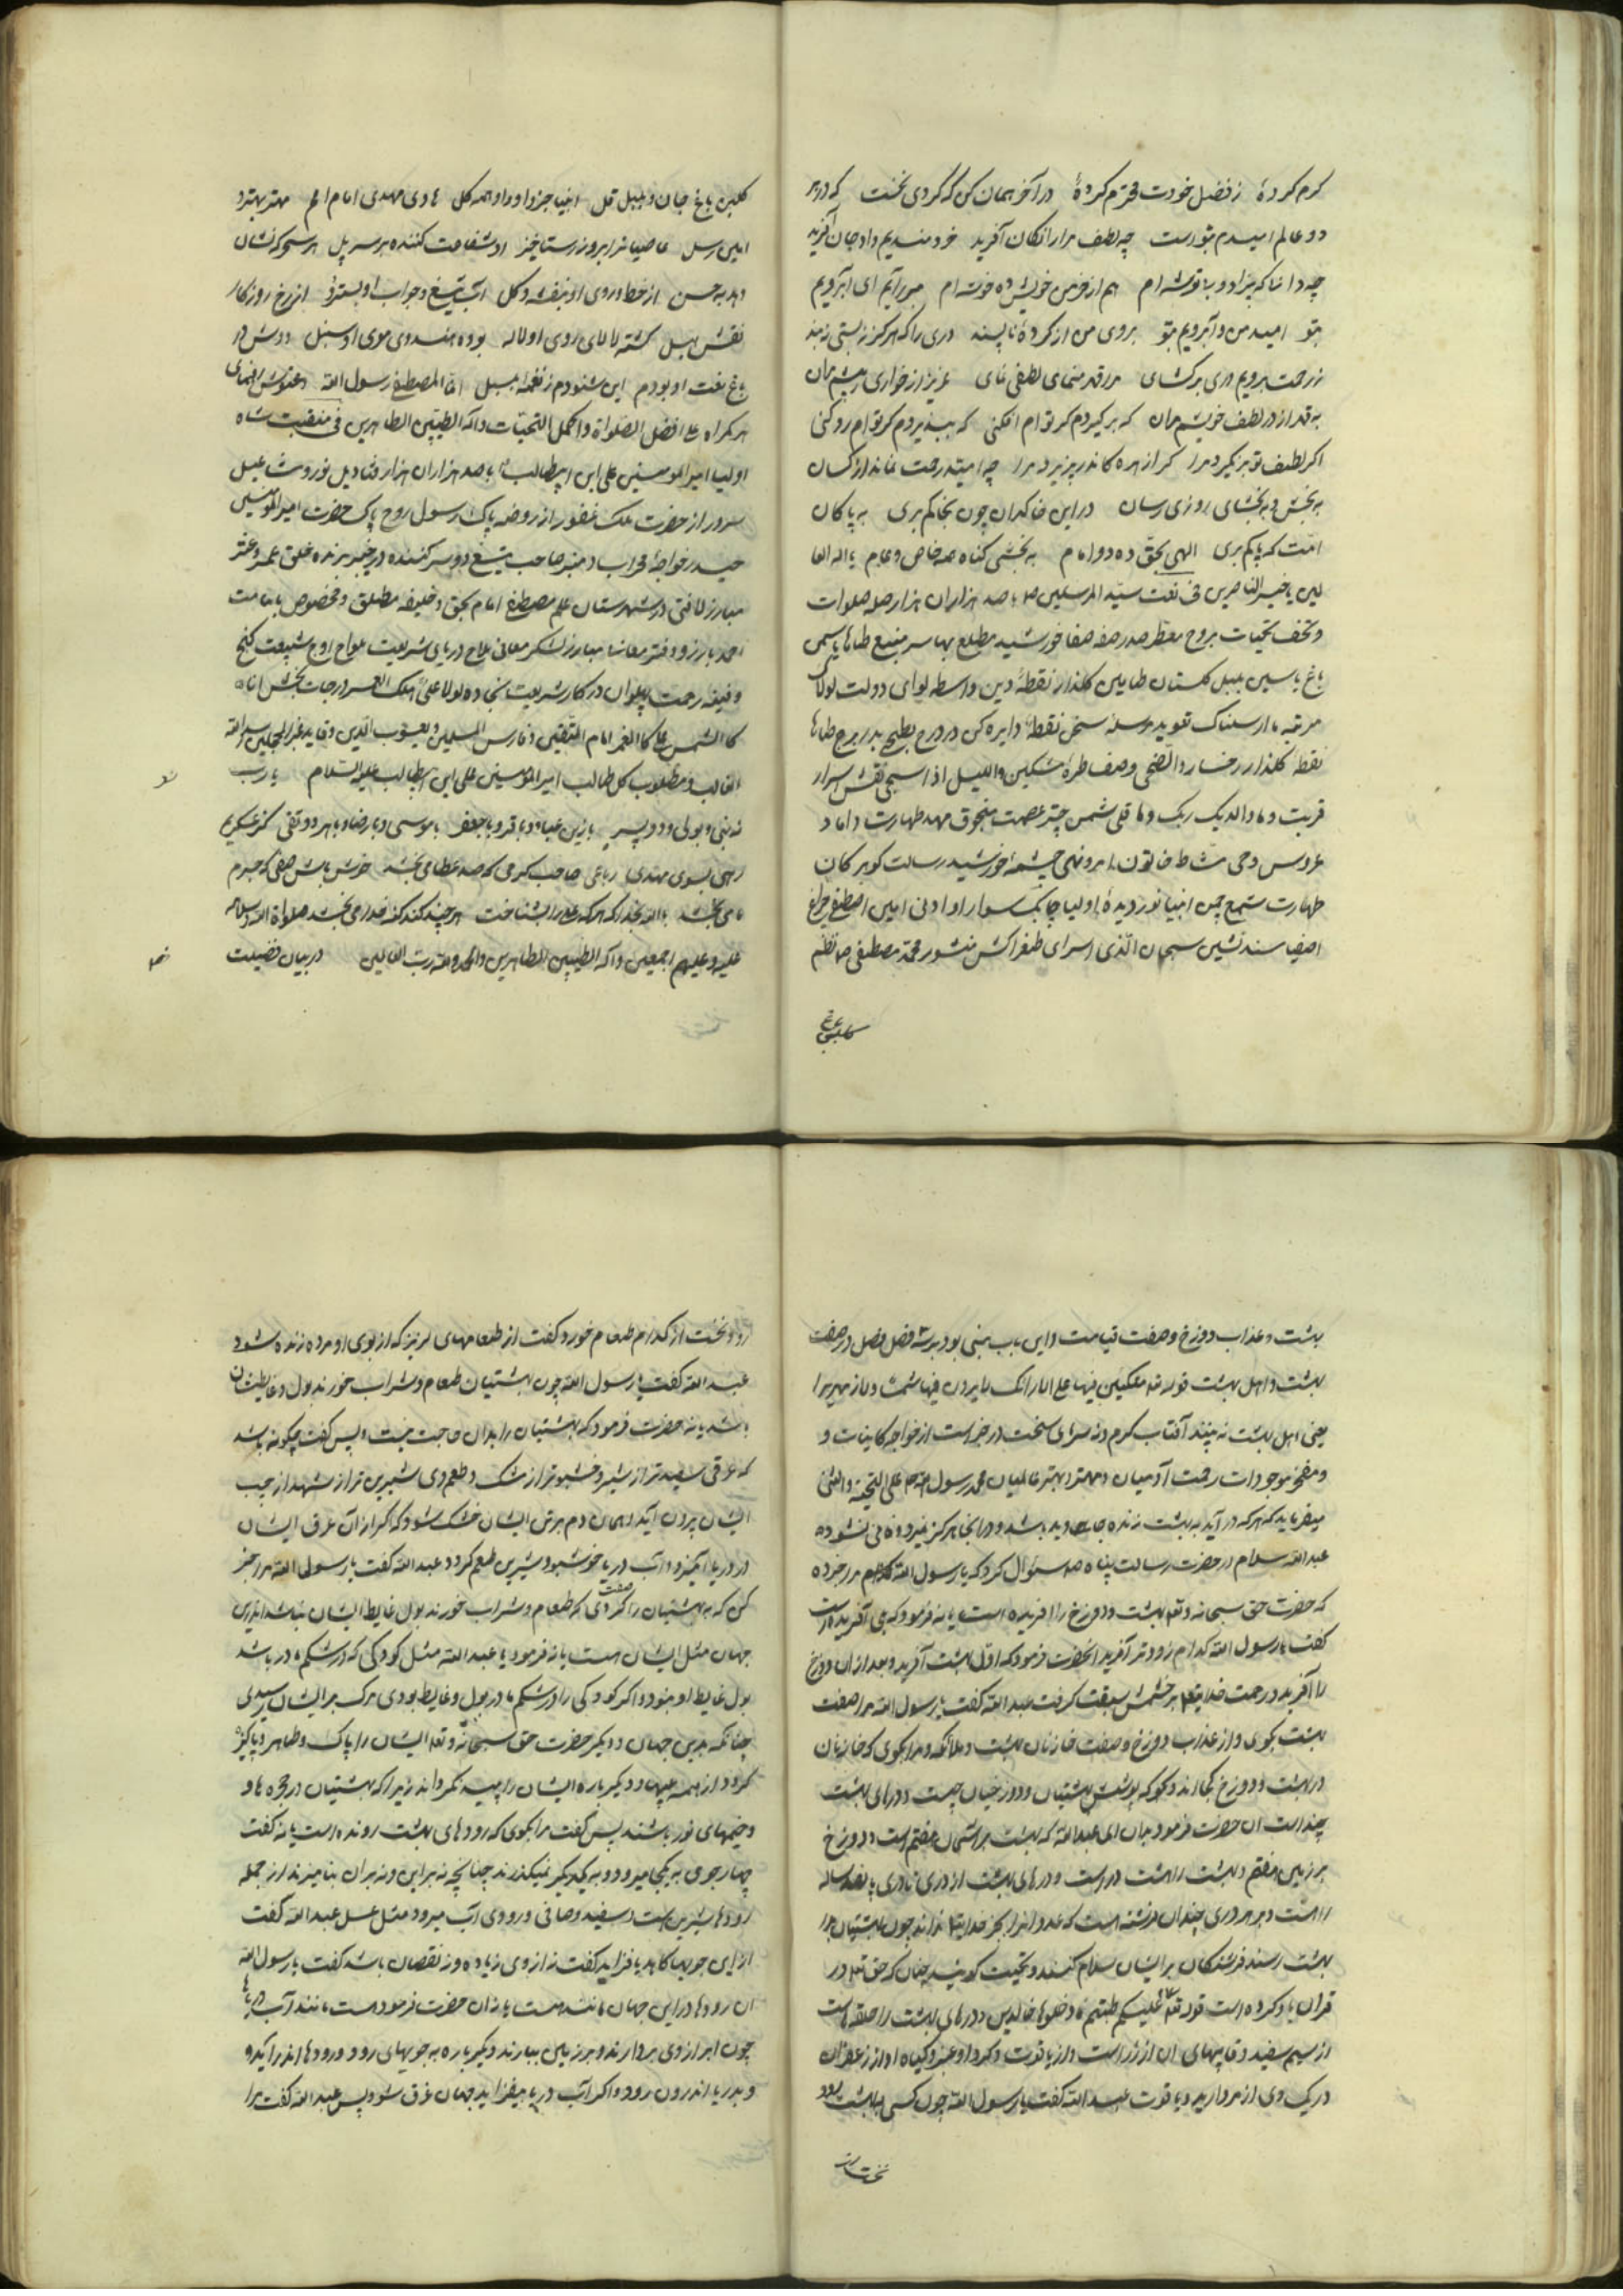 کرم کردهٔ ز فضل خودت محترم کردهٔ در آخر همان کن که کردی نخست که در هر
دو عالم امیدم بتو است چه لطف مرا رایگان آفرید خردمندیم داد جان آفرید
چه دانا که بیزاد و بی توشه ام هم از خرمن خویش ده خوشه ام مبر آبم ای آبرویم
بتو امید من و آبرویم بتو بروی من از کردهٔ ناپسند دری را که هرگز نه بستی مبند
ز رحمت برویم دری برکشای مرا قدر منمای لطفی نمای عزیز از خواری پیشم مران
به قدر از در لطف خویشم مران که برگیردم گر توام افکنی که بپذیردم گر توام رد کنی
اگر لطف تو برنگیرد مرا گر از بهره کاندر پذیرد مرا چه امید رحمت نماند از کسان
به بخش و به بخشای روزی رسان در این خاکدان چون بخاکم بری به پاکان
امّت که پاکم بری الهی بحق ده و دو امام به بخشی گناه همه خاص و عام یا اله العا
لمین یا خیر الناصرین فی نعت سیّد المرسلین ص با صد هزاران هزار صله صلوات
و تحف تحیات بروح معطر صدر صفه صفا خورشید مطلع بها سر منبع طاها یاسمن
باغ یاسین بلبل گلستان طایسین گلذار نقطهٔ دین واسطه لوای دولت لولاک
مرتبه ما ارسلناک تعوید سخن نقطهٔ دایره کن در درج بطحی بدر برج طاها
نقطه گلذار رخسار والضحی وصف طره مشکین واللیل اذا سجی نقش اسرار
قربت و ما ودعک ربک و ما قلی شمس چتر عصمت منجوق مهد طهارت داماد
عروس وحی مشاط خاتون امر و نهی چشمهٔ خورشید رسالت گوهر کان
طهارت شمع چمن انبیا نور دیدهٔ اولیا چابک سوار او ادنی امین اصطفی چراغ
اصفیا مسند نشین سبحان الّذی اسری طغراکش منشور محمّد مصطفی ص نظم
گلبن باغ
گلبن باغ جان و بلبل قل انبیا جزو او و او همه کل هادی مهدی امام امم مهتر بهتر و
امین رسل عاصیانرا بروز رستاخیز او شفاعت کننده بر سر پل هر سحر کز نشان
دهد به حسن از خط و روی او بنفشه و گل آب تیغ و جواب او بسترد از رخ روزگار
نقش هبل گشته لالای روی او لاله بوده هندوی موی او سنبل دوش در
باغ نعت او بودم این شنودم ز نغمهٔ بلبل انّا المصطفی رسول الله
هر گمراه علی افضل الصلواة و اکمل التحیّات و آله الطیّبین الطاهرین فی منقبت شاه
اولیا امیر المومنین علی ابن ابیطالب با صد هزاران هزار قنادیل نور و مشاعیل
سرور از حضرت ملک غفور از روضه پاک رسول روح پاک حضرت امیر المومنین
حیدر خواجهٔ محراب و منبر صاحب تیغ دو سر کننده در خیبر برنده حلق عمرو عنتر
مبارز لافتی در شهرستان علم مصطفی امام بحق و خلیفه مطلق و مخصوص بامامت
کا الشمس علی کا القمر امام المتّقین و فارس المسلمین و یعسوب الدّین و قاید غرّ المحجلین اسد الله
الغالب و مطلوب کل طالب امیر المؤمنین علی ابن ابیطالب علیه السّلام یا ربّ
به نبی و بولی و دو پسر با زین عباد و باقر و با جعفر با موسی و با رضا و با هر دو تقی کز عسکریم
رهی بسوی مهدی رباعی صاحب کرمی که صد عطا می بخشد خوش باش صفی که جرم
ما می بخشد باالله بخدا که هر که علی را بشناخت هر چند کند گنه خدا می بخشد صلواة الله و سلامه
علیه و علیهم اجمعین و آله الطیّبین الطاهرین و الحمد و الله ربّ العالمین در بیان فضیلت
بهشت و عذاب دوزخ و صفت قیامت و این باب مبنی بود بر سه فصل فصل در صفت
بهشت و اهل بهشت قوله تع متکیین فیها علی الارائک لا یرون فیها شمسا و لا زمهریرا
یعنی اهل بهشت نه بینند آفتاب گرم و نه سرمای سخت در خبر است از خواجه کاینات و
و مفخر موجودات رحمت آدمیان و مهتر و بهتر عالمیان محمّد رسول الله ص علی التحیّة و الثنی
میفرماید که هر که در آید به بهشت زنده جاوید باشد و در انجا هرگز نمیرد و فانی نشود
عبد الله سلام در حضرت رسالت پناه ص سئوال کرد که یا رسول الله مرا خبر ده
که حضرت حق سبحانه و تع بهشت و دوزخ را آفریده است یا نه فرمود که بلی آفریده است
گفت یا رسول الله کدام زودتر آفرید انحضرت فرمود که اوّل بهشت آفرید و بعد از ان دوزخ
را آفرید و رحمت خدایتع بر خشمش سبقت گرفت عبد الله گفت یا رسول الله مرا صفت
بهشت بگوی و از عذاب دوزخ و صفت خازنان بهشت و ملائکه و مرا بگوی که خازنان
در بهشت و دوزخ کجااند و بگو که پوشش بهشتیان و دوزخیان چیست و درهای بهشت
چند است ان حضرت فرمود بدان ای عبد الله که بهشت بر آسمان هفتم است و دوزخ
بر زمین هفتم و بهشت را هشت در است و درهای بهشت از دری تا دری پانصد ساله
راهست و بر هر دری چندان فرشته است که عدد انرا بجز خدایتع نداند چون بهشتیان بدر
بهشت رسند فرشتگان بر ایشان سلام کنند و تحیت گویند چنان که حق تع در
قران یاد کرده است قوله تع سلام علیکم طبتم فادخلوها خالدین و درهای بهشت را حلقه هاست
از سیم سفید و قایمهای ان از زر است و از یاقوت و گرد او عنبر و گیاه او از زعفران
و ریگ وی از مروارید و یاقوت عبد الله گفت یا رسول الله چون کسی ببهشت رود
نخست از
رود نخست از کدام طعام خورد گفت از طعامهای لزیز که از بوی او مرده زنده شود
عبد الله گفت یا رسول الله چون بهشتیان طعام و شراب خورند بول و غایطشان
باشد یا نه حضرت فرمود که بهشتیان را بدان حاجت نیست پس گفت چگونه باشد
که عرقی سفیدتر از شیر و خشبوتر از مشک و طعم وی شیرین تر از شهد از جیب
ایشان برون آید و همان دم بر تن ایشان خشک شود که اگر از آن عرق ایشان
در دریا آمیزد آب دریا خوشبو و شیرین طعم گردد عبد الله گفت یا رسول الله مرا خبر
کن که بهشتیان را صفت کردی که طعام و شراب خورند بول غایط ایشان نباشد اندرین
جهان مثل ایشان هست یا نه فرمود یا عبد الله مثل کودکی که در شکم مادر باشد
بول غایط او نبود و اگر کودکی را در شکم مادر بول و غایط بودی مرگ بر ایشان رسیدی
چنانکه بدین جهان و دیگر حضرت حق سبحانه و تع ایشان را پاک و طاهر و پاکیزه
گرد از همه عیبها و دیگر باره ایشان را پلید نگرداند زیرا که بهشتیان در حجره ها و
و خیمهای نور باشند پس گفت مرا بگوی که رودهای بهشت رونده است یا نه گفت
چهار جوی به یکجا میرود و به یکدیگر نمیگذرند چنانچه نه بر این و نه بر ان بنامیزند از جمله
رودها شیرین است و سفید و صافی و رودی آب میرود مثل عسل عبد الله گفت
از این جویها کاهد یا فزاید گفت نه از وی زیاده و نه نقصان باشد گفت یا رسول الله
ان رودها در این جهان مانند هست یا نه ان حضرت فرمود هست مانند آب دریا ها
چون ابر از وی بردارند و بر زمین ببارند و دیگر باره به جویهای رود و رودها اندر آید و
و بدریا اندرون رود و اگر آب دریا بیفزاید جهان غرق شود پس عبد الله گفت مرا